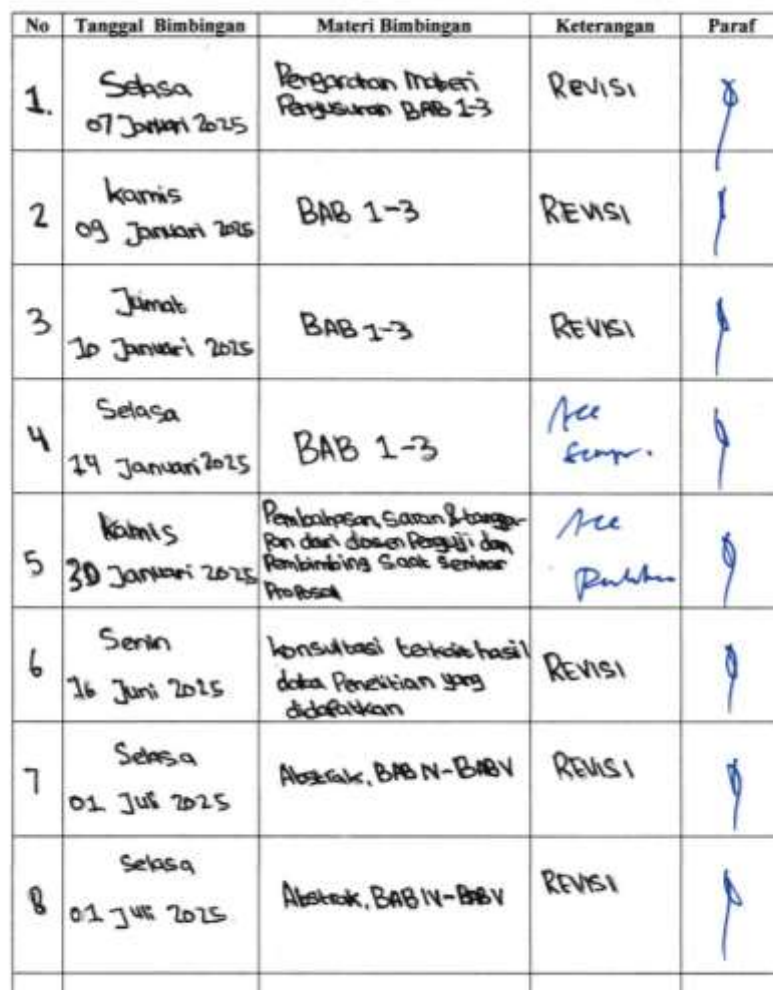 No Tanggal Bimbingan Materi Bimbingan Keterangan Paraf
1. Selasa
07 Januari 2025
Pengarahan Materi
Penyusunan BAB 1-3
REVISI
2 Kamis
09 Januari 2025
BAB 1-3
REVISI
3 Jumat
10 Januari 2025
BAB 1-3
REVISI
4 Selasa
14 Januari 2025
BAB 1-3
Acc
Sempr.
5 Kamis
30 Januari 2025
Pembahasan, Saran & tangga-
pan dari dosen Penguji dan
Pembimbing Saat Seminar
Proposal
Acc
6 Senin
16 Juni 2025
konsultasi terkait hasil
data Penelitian yang
didapatkan
REVISI
7 Selasa
01 Juli 2025
Abstrak, BAB IV-BAB V
REVISI
8 Selasa
01 Juli 2025
Abstrak, BAB IV-BAB V
REVISI